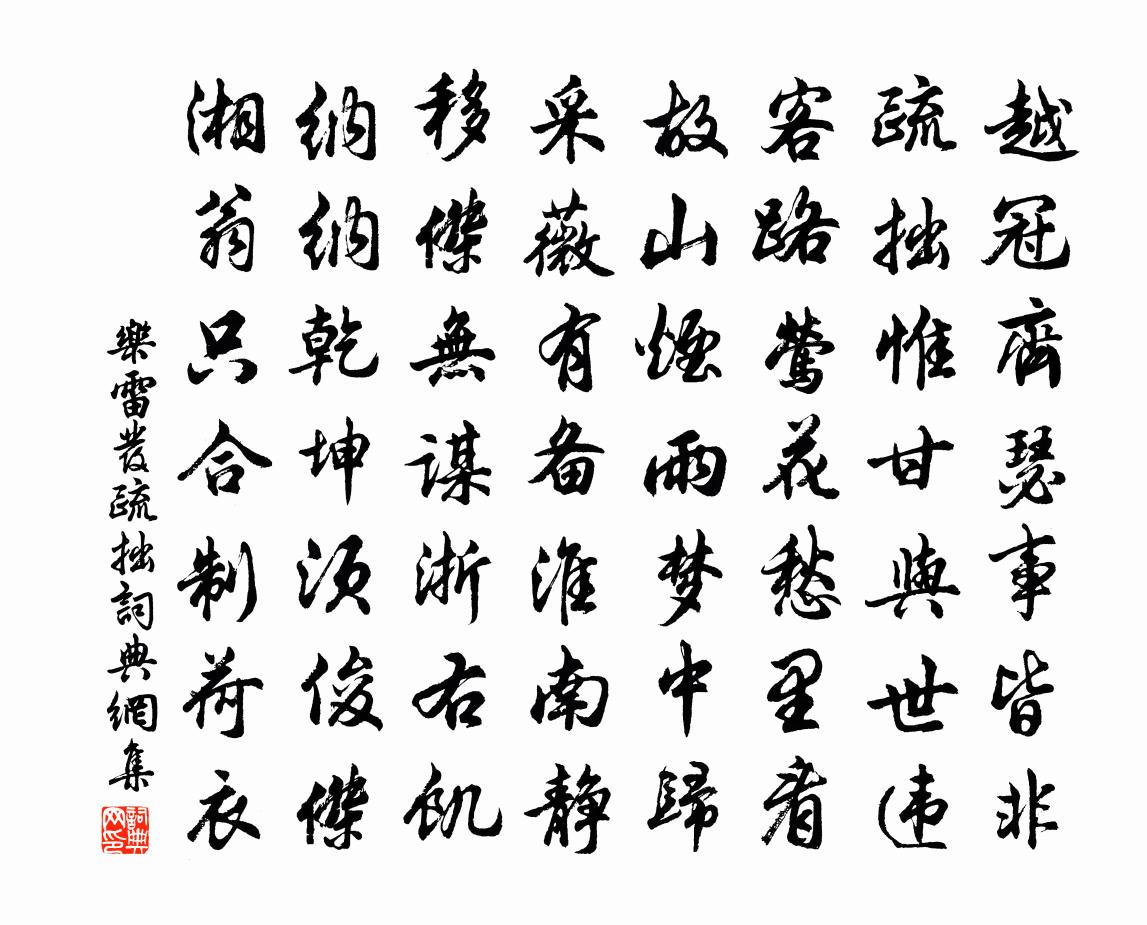 越冠齊瑟事皆非
疏拙惟甘與世違
客路鶯花愁里看
故山煙雨梦中歸
采薇有备淮南静
移傑無謀浙右飢
納納乾坤须俊傑
湘翁只合制荷衣
樂雷發疏拙詞典網集
詞典网印